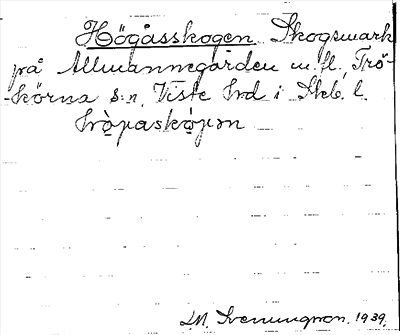 Högåsskogen, Skogsmark
på Allmannegården m.fl., Trö-
-körna s:n, Viste hrd i Skb. l.
L.M. Svenungsson, 1939.